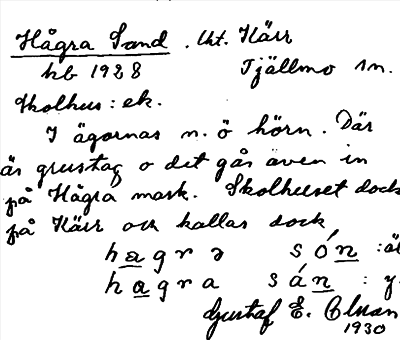 Hågra Sand. Ut. Kärr
hb 1928 Tjällmo sn.
Skolhus: ek.
I ägornas n. ö hörn. Där
är grustag o det går även in
på Hågra mark. Skolhuset dock
på Kärr och kallas dock
hagrə són : äl
hagra sán : y.
Gustaf E.
1930